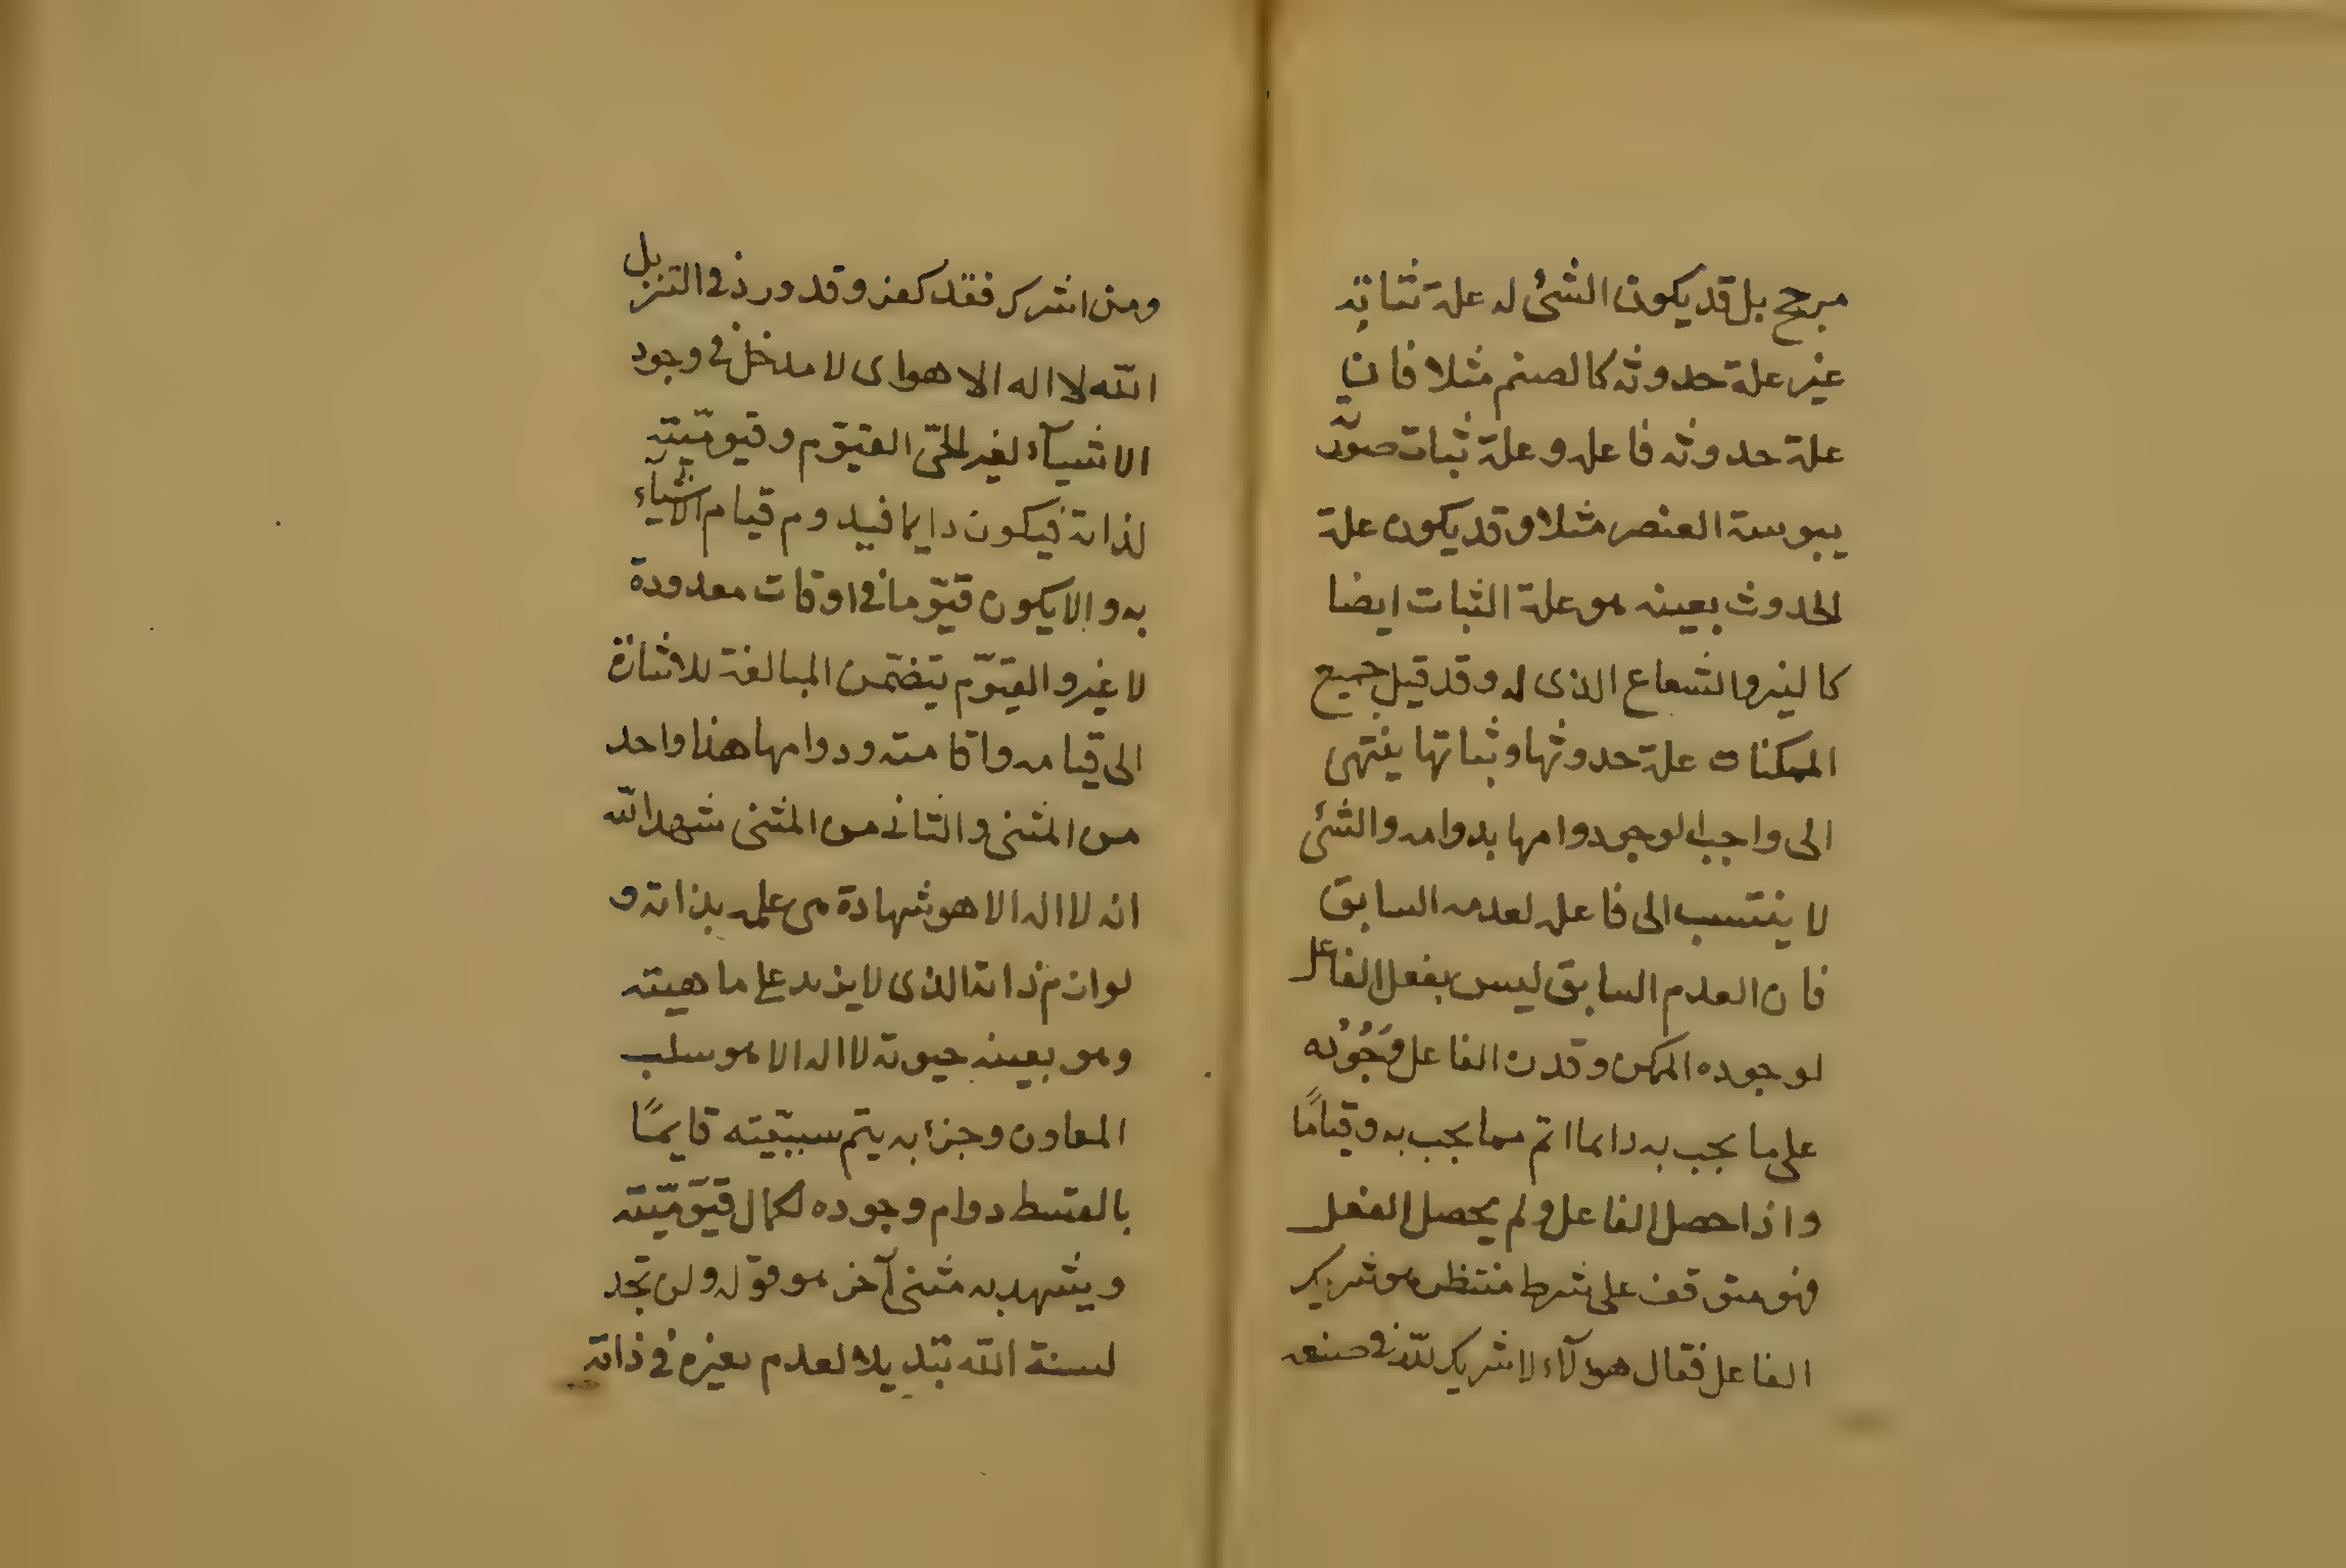 مرجح بل قد يكون الشئ له علة ثباته
غير علة حدوثه كالصنم مثلا فان
علة حدوثه فاعله وعلة ثبات صورته
يبوسة العنصر مثلا وقد يكون علة
الحدوث بعينه هو علة الثبات ايضا
كالنير والشعاع الذى له وقد قيل جميع
الممكنات علة حدوثها وثباتها ينتهى
الى واجب الوجود دوامها بدوامه والشئ
لا ينتسب الى فاعله لعدمه السابق
فان العدم السابق ليس بفعل الفاعل
لوجوده الممكن وقدرة الفاعل وَجُودُه
على ما يجب به دايما اتم مما يجب به وقياما
واذا حصل الفاعل ولم يحصل الفعل
فهو متوقف على شرط منتظر هو شريك
الفاعل فقال هولآء لا شريك لله في صنعه
ومن اشرك فقد كفر وقد ورد في التنزيل
الله لا اله الا هو اى لا مدخل في وجود
الاشيآء لغير الحىّ القيّوم وقيوميّته
لذاته فيكون دايما فيدوم قيام الاشيآء
به والا يكون قيّوما في اوقات معدودة
لا غير والقيّوم يتضمّن المبالغة للاشارة
الى قيامه واقامته ودوامها هذا واحد
من المثنى والثانى من المثنى شهد الله
انه لا اله الا هو شهادة من علمه بذاته و
لوازم ذاته الذى لا يزيد على ماهيته
وهو بعينه حيوته لا اله الا هو سلب
المعاون وجزء به يتم سببيّته قايمًا
بالقسط دوام وجوده لكمال قيّوميّته
ويشهد به مثنى آخر هو قوله ولن تجد
لسنة الله تبديلا لعدم تغيره في ذاته